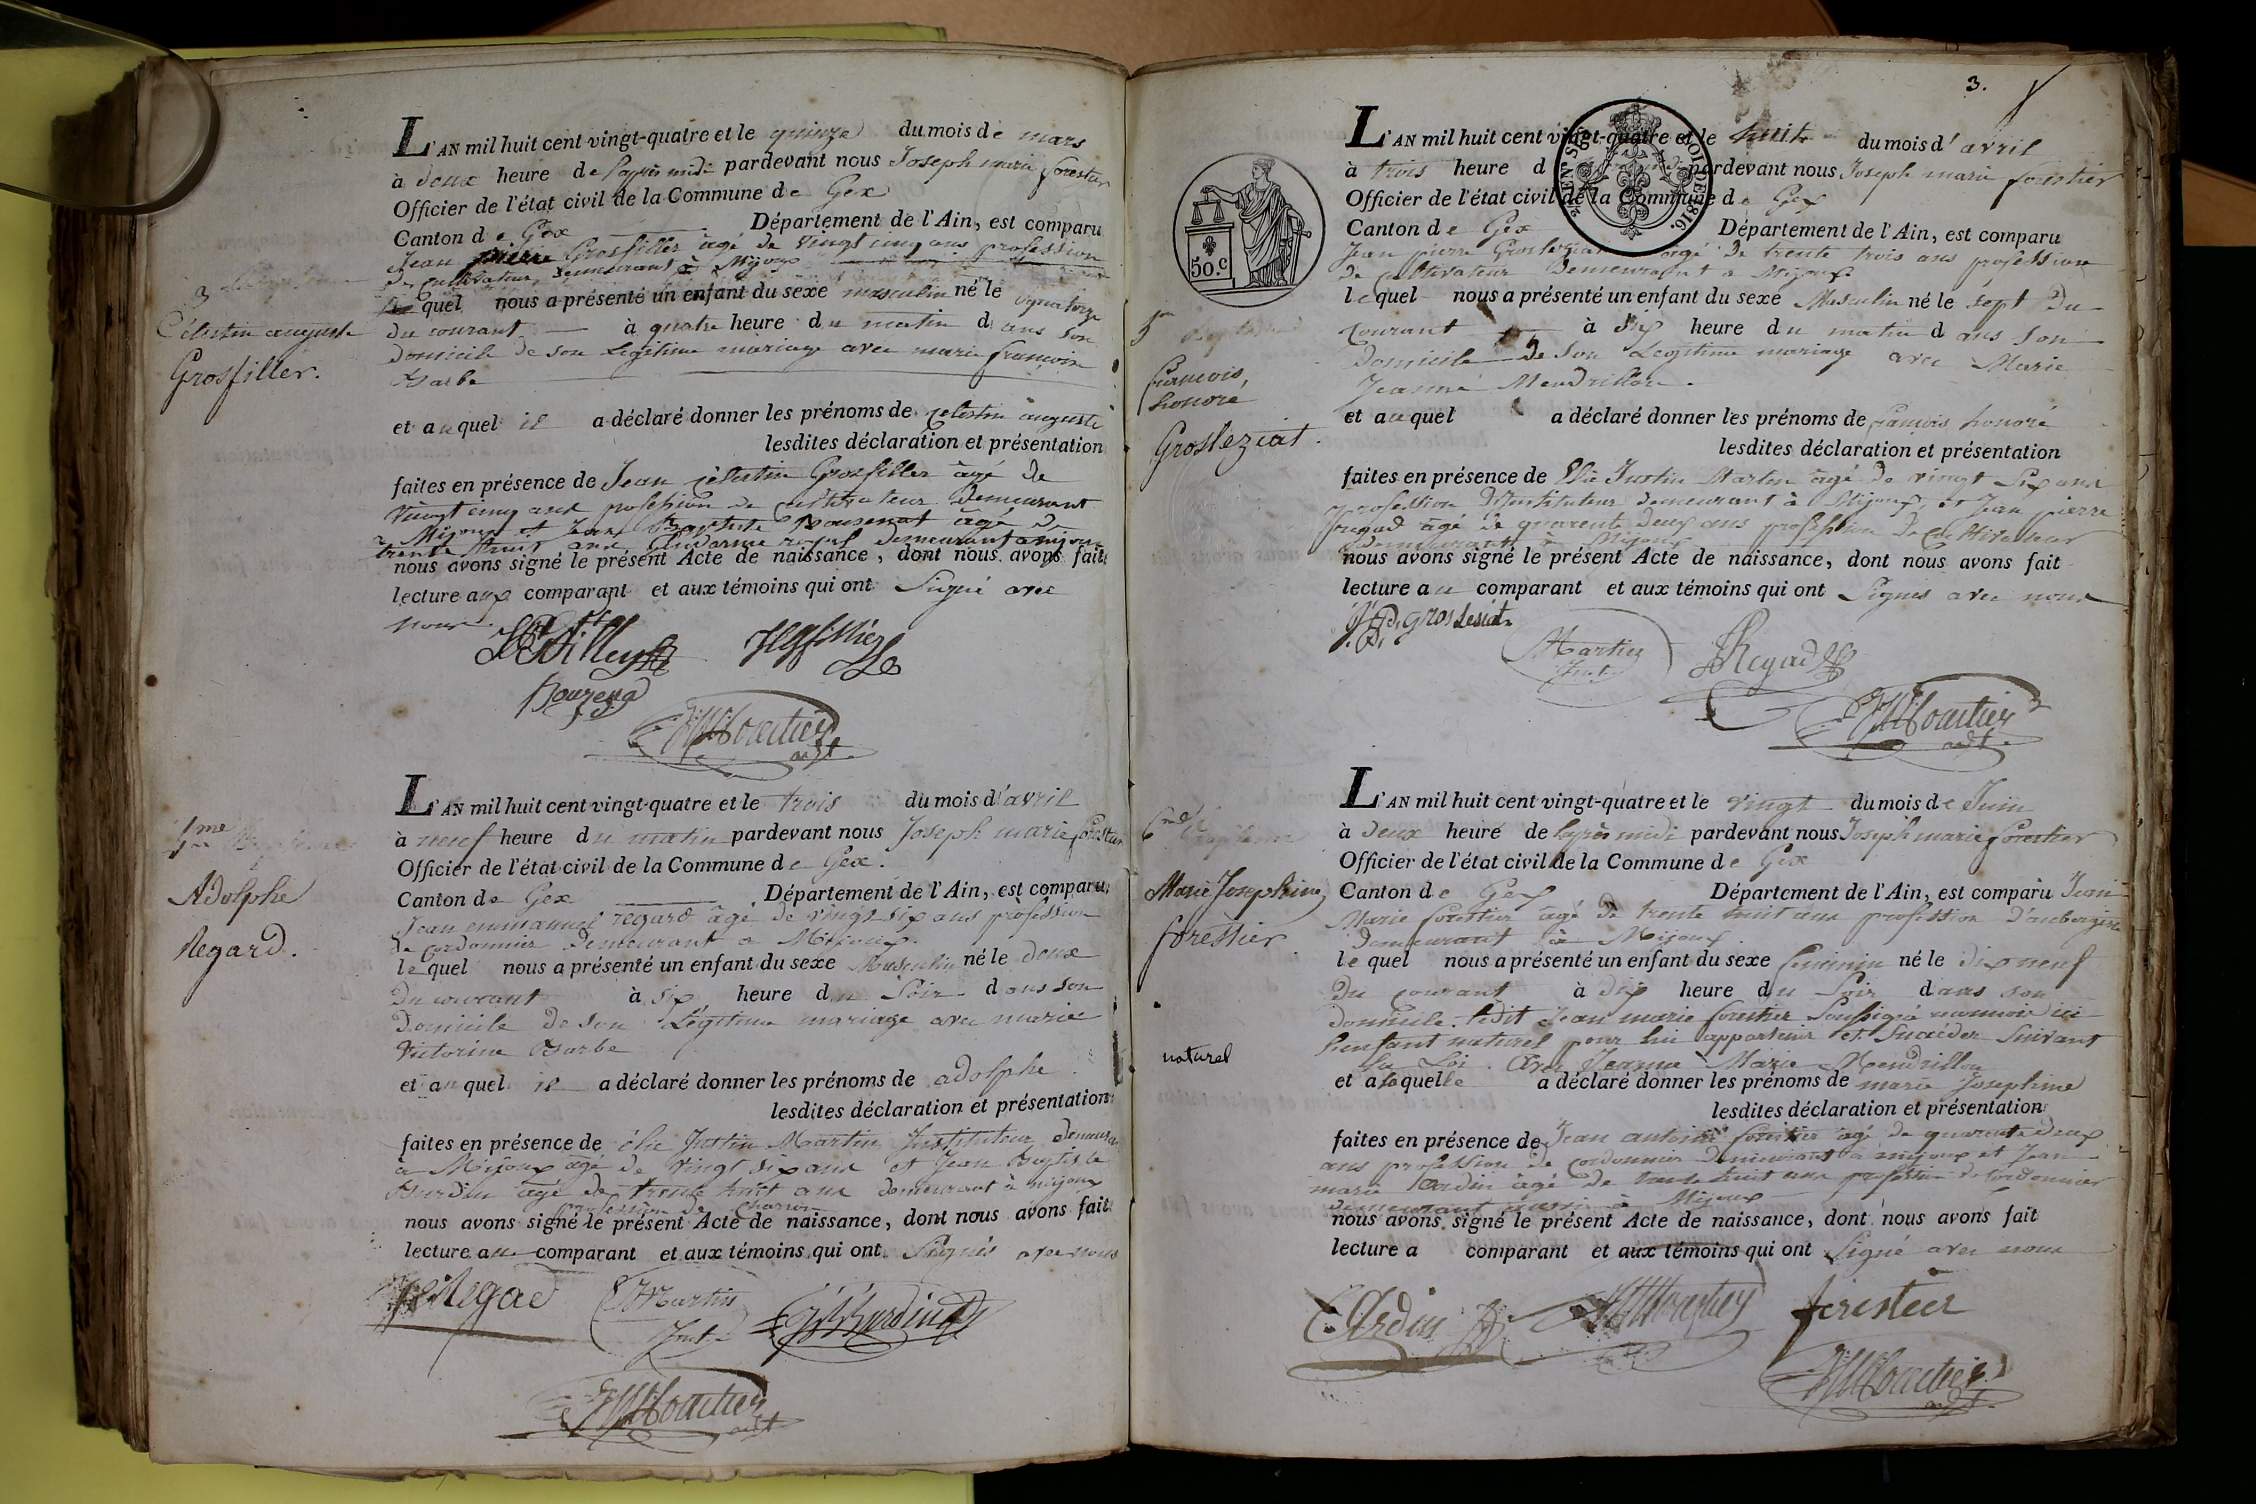 L'AN mil huit cent vingt-quatre et le quinze du mois de mars
à deux heure de l'après midi pardevant nous Joseph marie forestier
Officier de l'état civil de la Commune de Gex
Canton de Gex Département de l'Ain, est comparu
Jean pierre Grosfiller âgé de vingt cinq ans profession
de cultivateur demeurant à Mijoux
le quel nous a présenté un enfant du sexe masculin né le quatorze
du courant à quatre heure du matin dans son
domicile de son Legitime mariage avec marie françoise
Barbe
et auquel il a déclaré donner les prénoms de celestin auguste
lesdites déclaration et présentation
faites en présence de Jean celestin Grosfiller âgé de
vingt cinq ans profession de cultivateur demeurant
a Mijoux et Jean Baptiste Bousenat âgé de
trente huit ans demeurant a mijoux
nous avons signé le présent Acte de naissance, dont nous avons fait
lecture aux comparant et aux témoins qui ont Signé avec
nous
3
Célestin auguste
Grosfiller.
Bouzena
adjt.
L'AN mil huit cent vingt-quatre et le trois du mois d'avril
à neuf heure du matin pardevant nous Joseph marie forestier
Officier de l'état civil de la Commune de Gex.
Canton de Gex Département de l'Ain, est comparu,
Jean emmanuel regard âgé de vingt six ans profession
de cordonnier demeurant a Mijoux.
le quel nous a présenté un enfant du sexe Masculin né le deux
du courant à six heure du Soir dans son
Domicile de son Légitime mariage avec marie
Victorine Barbe
et auquel il a déclaré donner les prénoms de adolphe.
lesdites déclaration et présentation
faites en présence de élie Justin Martin Instituteur demeurant
à Mijoux âgé de vingt six ans et Jean Baptiste
Burdin âgé de trente huit ans demeurant à mijoux
profession de charron
nous avons signé le présent Acte de naissance, dont nous avons fait
lecture au comparant et aux témoins qui ont Signés avec nous
4me
Adolphe
Regard.
JERegad
Martin
Inst.
Burdin
adjt
3.
L'AN mil huit cent vingt-quatre et le huit du mois d'avril
à trois heure d pardevant nous Joseph marie forestier
Officier de l'état civil de la Commune de Gex
Canton de Gex Département de l'Ain, est comparu
Jean pierre Grosleziat âgé de trente trois ans profession
de cultivateur demeurant a Mijoux
le quel nous a présenté un enfant du sexe Masculin né le sept du
courant à six heure du matin dans son
domicile de son Legitime mariage avec Marie
Jeanne Mendrillon.
et auquel a déclaré donner les prénoms de françois honoré
lesdites déclaration et présentation
faites en présence de Elie Justin Martin âgé de vingt six ans
profession d'Instituteur demeurant à Mijoux, et Jean pierre
regad âgé de quarente deux ans profession de Cultivateur
demeurant à Mijoux
nous avons signé le présent Acte de naissance, dont nous avons fait
lecture au comparant et aux témoins qui ont Signés avec nous
50.c
5me
françois,
honoré
Grosleziat.
J.P. grosLesiat
Martin
Inst.
Regad
adjt.
L'AN mil huit cent vingt-quatre et le vingt du mois de Juin
à deux heure de l'après midi pardevant nous Joseph marie forestier
Officier de l'état civil de la Commune de Gex
Canton de Gex Département de l'Ain, est comparu Jean
Marie forestier âgé de trente huit ans profession d'aubergiste
demeurant à Mijoux.
le quel nous a présenté un enfant du sexe feminin né le dix neuf
du courant à dix heure du Soir dans son
domicile. ledit Jean marie forestier Soussigné
l'enfant naturel pour lui appartenir et Succéder Suivant
la Loi. Avec Jeanne Marie Mendrillon
et a laquelle a déclaré donner les prénoms de marie Josephine
lesdites déclaration et présentation
faites en présence de Jean antoine forestier âgé de quarante deux
ans profession de cordonnier demeurant à mijoux et Jean
marie Cardin âgé de trente huit ans profession de Cordonnier
demeurant aussi à Mijoux
nous avons signé le présent Acte de naissance, dont nous avons fait
lecture a comparant et aux témoins qui ont Signé avec nous
6me
Marie Josephine
forestier
naturel
forestier
adjt.